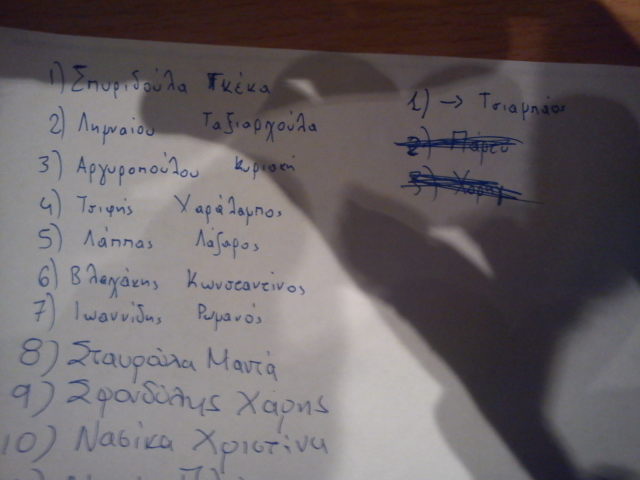 1) Σπυριδούλα Γκέκα
2) Λημναίου Ταξιαρχούλα
3) Αργυροπούλου Κυριακή
4) Τσιφής Χαράλαμπος
5) Λάππας Λάζαρος
6) Βλαχάκης Κωνσταντίνος
7) Ιωαννίδης Ρωμανός
8) Σταυρούλα Μαντά
9) Σφονδύλης Χάρης
10) Νασίκα Χριστίνα
1) → Τσιαμπάος
2)
3)